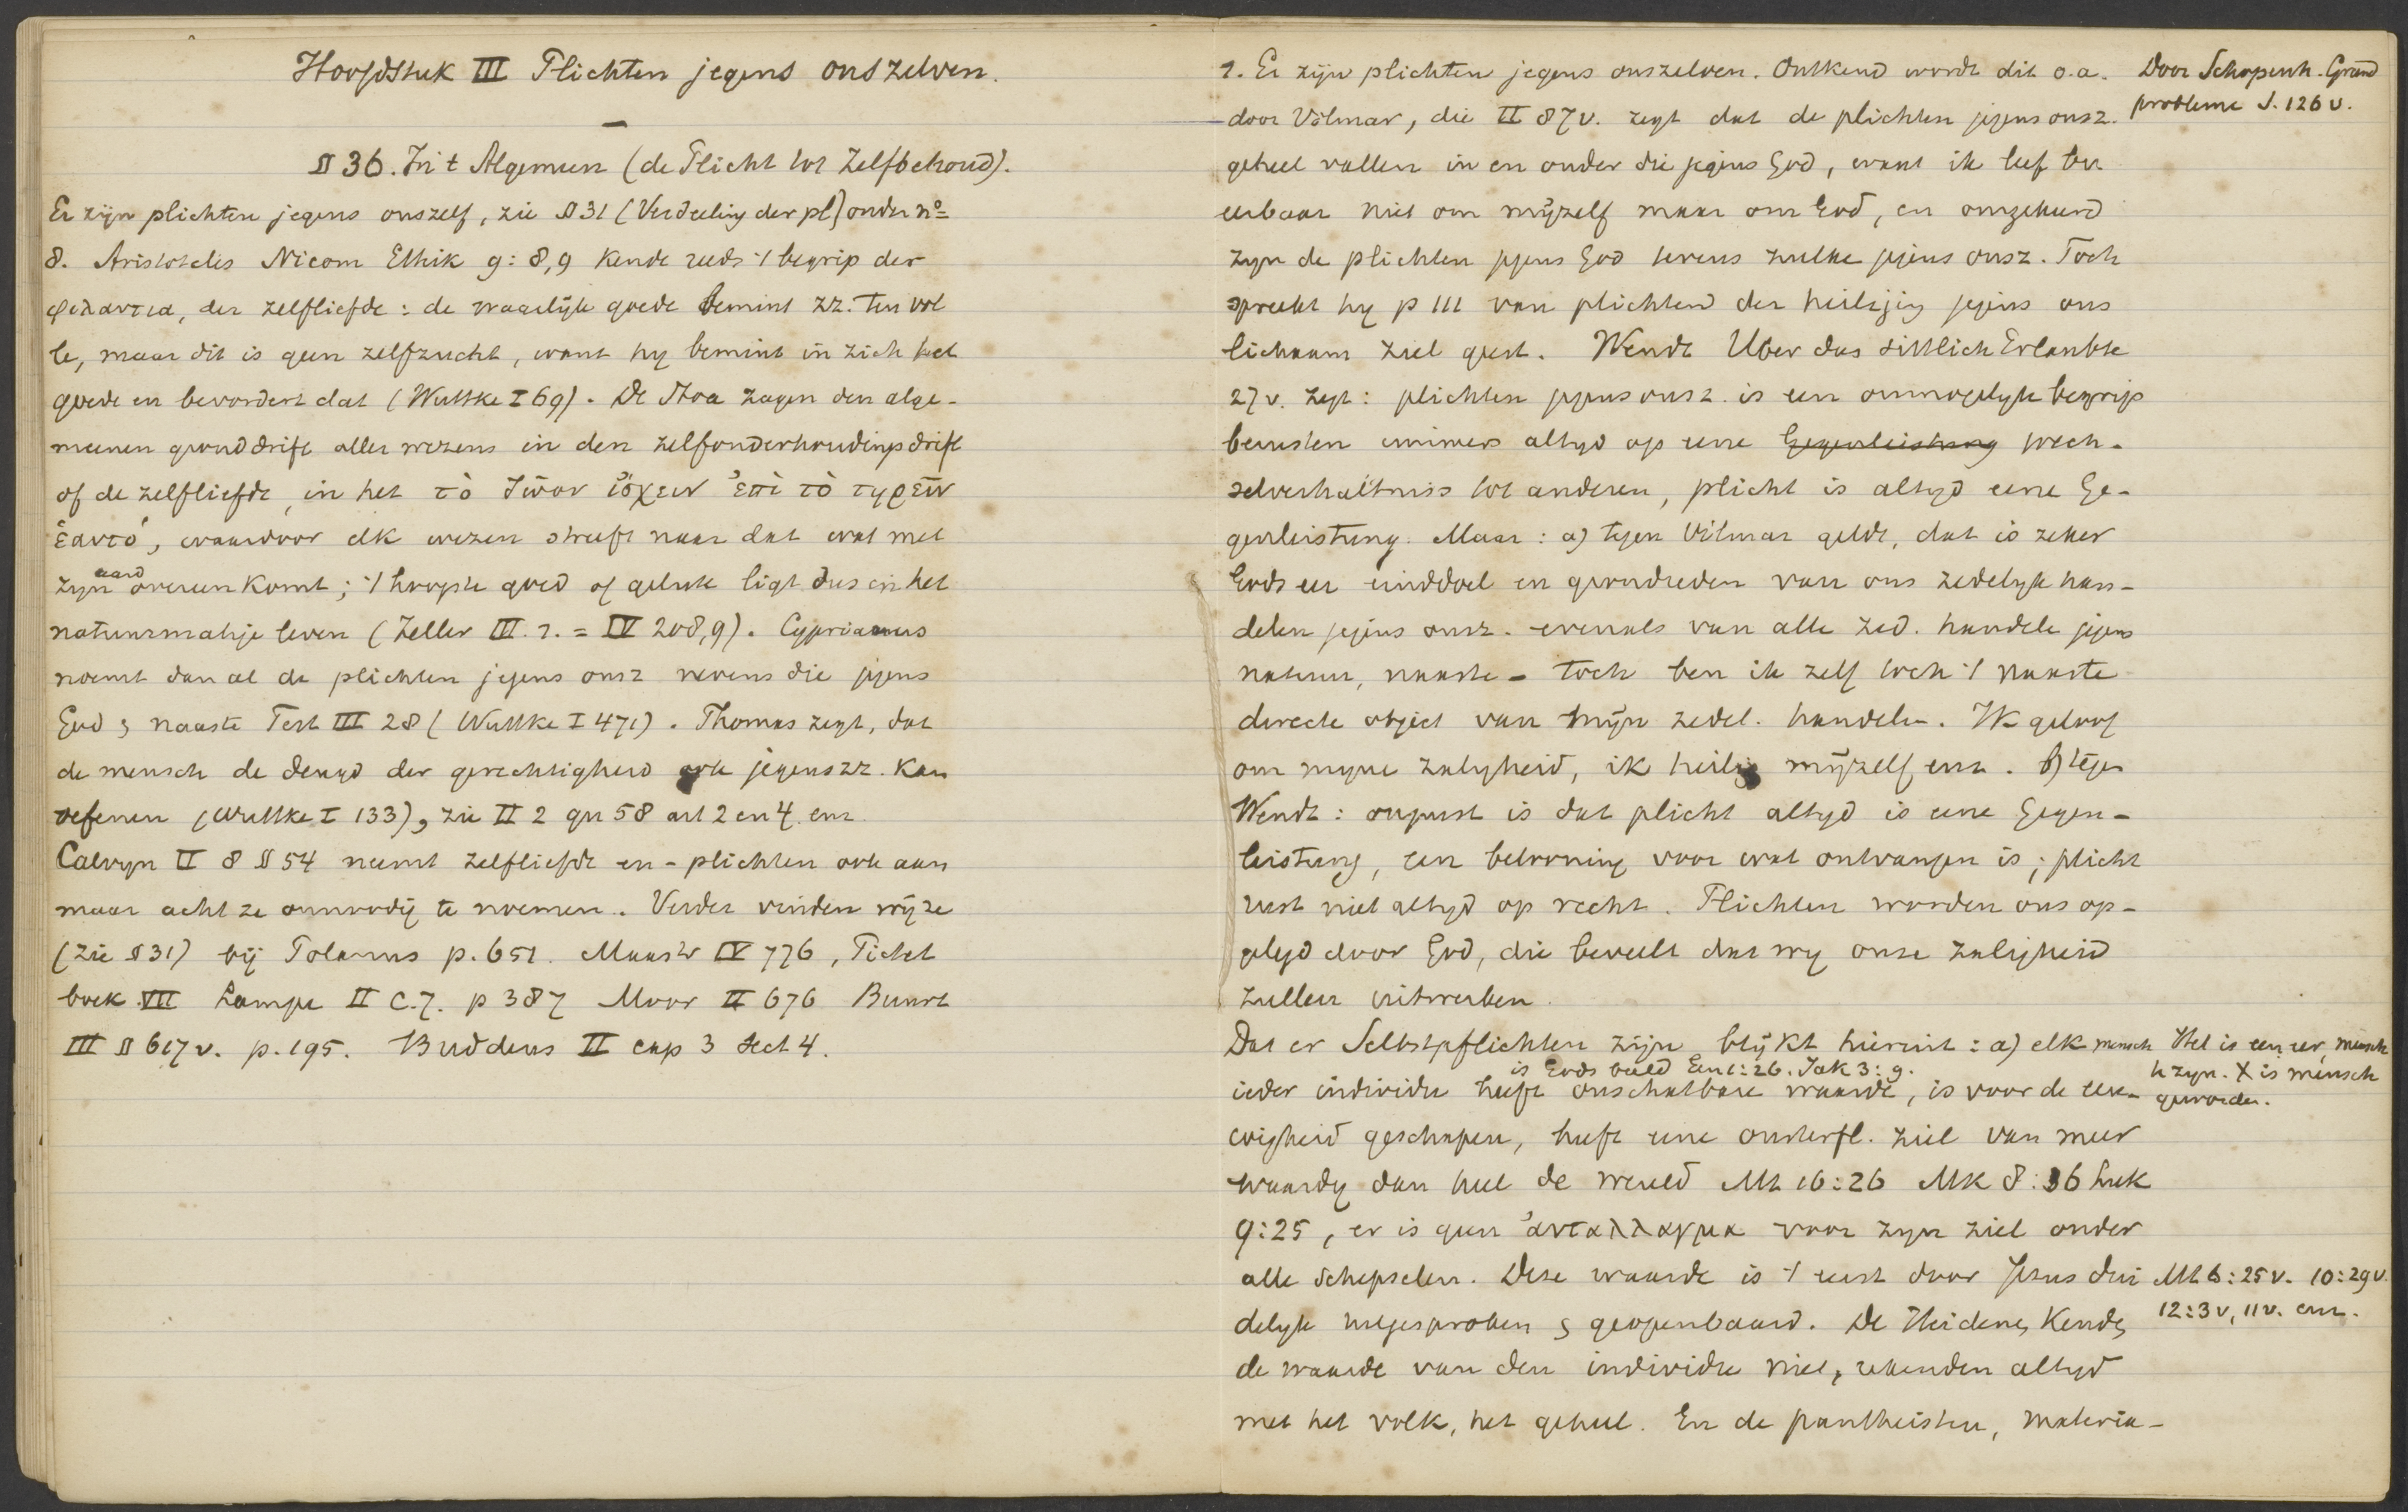 Hoofdstuk III Plichten jegens onszelven.
§ 36. In 't Algemeen (de Plicht tot Zelfbehoud).
Er zijn plichten jegens onszelf, zie § 31 (Verdeeling der pl) onder no
8. Aristoteles Nicom Ethik 9: 8,9 kende reeds 't begrip der
φιλαυτια, der zelfliefde: de waarlijk goede bemint zz. ten vol
le, maar dit is geen zelfzucht, want hy bemint in zich het
goede en bevordert dat (Wuttke I 69). De Stoa zagen den alge-
meenen gronddrift aller wezens in den zelfonderhoudingsdrift
of de zelfliefde, in het τὸ ζῶον ἴσχειν ἐπὶ τὸ τηρεῖν
ἑαυτό, waardoor elk wezen streeft naar dat wat met
zyn aard overeenkomt; 't hoogste goed of geluk ligt dus in het
natuurmatige leven (Zeller III. 1. = IV 208,9). Cyprianus
noemt dan al de plichten jegens onsz nevens die jegens
God & naaste Test III 28 (Wuttke I 471). Thomas zegt, dat
de mensch de deugd der gerechtigheid ook jegens zz. kan
oefenen (Wuttke I 133), zie II 2 qu 58 art 2 en 4. enz.
Calvyn II 8 § 54 neemt zelfliefde en -plichten ook aan
maar acht ze onnoodig te noemen. Verder vinden wij ze
(zie § 31) bij Polanus p. 651. Maastr IV 776, Pictet
boek VII Lampe II C.7. p 387 Moor II 676 Buurt
III § 617 v. p. 195. Buddeus II cap 3 Sect 4.
1. Er zijn plichten jegens onszelven. Ontkend wordt dit o.a.
Door Schopenh. Grund
probleme S. 126 v.
door Vilmar, die II 87 v. zegt dat de plichten jegens onsz.
geheel vallen in en onder die jegens God, want ik leef
eerbaar niet om mijzelf maar om God, en omgekeerd
zyn de plichten jegens God tevens zulke jegens onsz. Toch
spreekt hy p 111 van plichten der heiliging jegens ons
lichaam ziel geest. Wendt Uber das sittlich Erlaubte
27 v. zegt: plichten jegens onsz. is een onmogelyk begrip
berusten immers altyd op eene Gegenleistung wech-
selverhältniss tot anderen, plicht is altyd eene Ge-
genleistung. Maar: a) tegen Vilmar geldt, dat is zeker
Gods eer einddoel en grondreden van ons zedelyk han-
delen jegens onsz. evenals van alle zed. handelen jegens
natuur, naaste - toch ben ik zelf toch 't naaste
directe object van mijn zedel. handelen. Ik geloof
om myne zaligheid, ik heilig mijzelf enz. b) tegen
Wendt: onjuist is dat plicht altyd is eene Gegen-
leistung, een belooning voor wat ontvangen is; plicht
rust niet altyd op recht. Plichten worden ons op-
gelegd door God, die beveelt dat wy onze zaligheid
zullen uitwerken.
Dat er Selbstpflichten zijn blijkt hieruit: a) elk mensch
Het is een eer, mensch
te zyn. X is mensch
geworden.
is Gods beeld Gen 1:26. Jak 3:9.
ieder individu heeft onschatbare waarde, is voor de eeu-
wigheid geschapen, heeft eene onsterfl. ziel van meer
waardy dan heel de wereld Mt 16:26 Mk 8:36 Luk
9:25, er is geen ἀνταλλαγμα voor zyn ziel onder
alle schepselen. Deze waarde is 't eerst door Jezus dui
Mt 6:25 v. 10:29 v.
12:3 v, 11 v. enz.
delyk uitgesproken & geopenbaard. De Heidenen kenden
de waarde van den individu niet, rekenden altyd
met het volk, het geheel. En de pantheisten, materia-